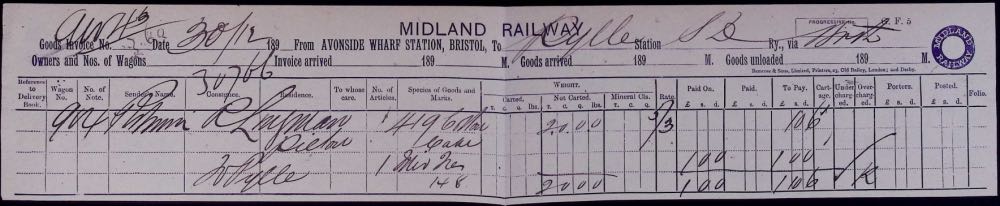 MIDLAND RAILWAY.
PROGRESSIVE No.
F. 5
Goods Invoice No. Date 30/12 189 From AVONSIDE WHARF STATION, BRISTOL, To Pylle Station S D Ry., via
MIDLAND RAILWAY
Owners and Nos. of Wagons 30766 Invoice arrived 189 M. Goods arrived 189 M. Goods unloaded 189 M.
Bemrose & Sons, Limited, Printers, 23, Old Bailey, London; and Derby.
Reference to Delivery Book. Wagon No. No. of Note. Sender's Name. Consignee. Residence. To whose care. No. of Articles. Species of Goods and Marks. WEIGHT. Carted. T. C. Q. lbs. Not Carted. T. C. Q. lbs. Mineral Cls. T. C. Q. Rate. Paid On. £ s. d. Paid. £ s. d. To Pay. £ s. d. Cartage. Under charged. Overcharged. Porters. £ s. d. Posted. £ s. d. Folio.
904 419 Cotton 2 0 0 0 5/3 10 6
Cake
1
W Pylle 1 0 0 1 0 0
148 2 0 0 0 1 0 0 1 10 6